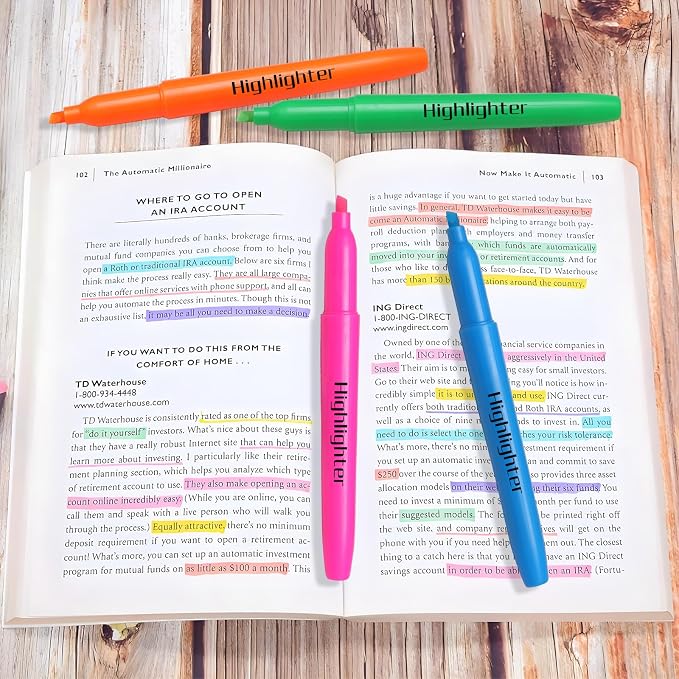 Highlighter
Highlighter
102 The Automatic Millionaire
WHERE TO GO TO OPEN
AN IRA ACCOUNT
There are literally hundreds of banks, brokerage firms, and
mutual fund companies you can choose from to help you
open a Roth or traditional IRA account. Below are six firms I
think make the process really easy. They are all large compa-
nies that offer online services with phone support, and all can
help you automate the process in minutes. Though this is not
an exhaustive list, it may be all you need to make a decision
IF YOU WANT TO DO THIS FROM THE
COMFORT OF HOME . . .
TD Waterhouse
1-800-934-4448
www.tdwaterhouse.com
TD Waterhouse is consistently rated as one of the top firms
for "do it yourself" investors. What's nice about these guys is
that they have a really robust Internet site that can help you
learn more about investing. I particularly like their retire-
ment planning section, which helps you analyze which type
of retirement account to use. They also make opening an ac-
count online incredibly easy. (While you are online, you can
call them and speak with a live person who will walk you
through the process.) Equally attractive, there's no minimum
deposit requirement if you want to open a retirement ac-
count! What's more, you can set up an automatic investment
program for mutual funds on as little as $100 a month. This
Highlighter
Now Make It Automatic 103
is a huge advantage if you want to get started today but have
little savings. In general, TD Waterhouse makes it easy to be-
come an Automatic, helping to arrange both pay-
roll deduction with employers and money transfer
programs, with which funds are automatically
moved into your or retirement accounts. And for
those who like to do face-to-face, TD Waterhouse
has more than 150 around the country.
ING Direct
1-800-ING-DIRECT
www.ingdirect.com
Owned by one of the financial service companies in
the world, ING Direct aggressively in the United
States. Their aim is to easy for small investors.
Go to their web site and you'll notice is how in-
credibly simple it is to and use. ING Direct cur-
rently offers both traditional and Roth IRA accounts, as
well as a choice of nine to invest in. All you
need to do is select the one matches your risk tolerance.
What's more, there's no minimum investment requirement if
you set up an automatic and commit to save
$250 over the course of the also provides three asset
allocation models on their using their six funds. You
need to invest a minimum of per month per fund to use
their suggested models. The printed right off
the web site, and company will get on the
phone with you if you need help them out. The closest
thing to a catch here is that you have an ING Direct
savings account in order to be able to open an IRA. (Fortu-
Highlighter